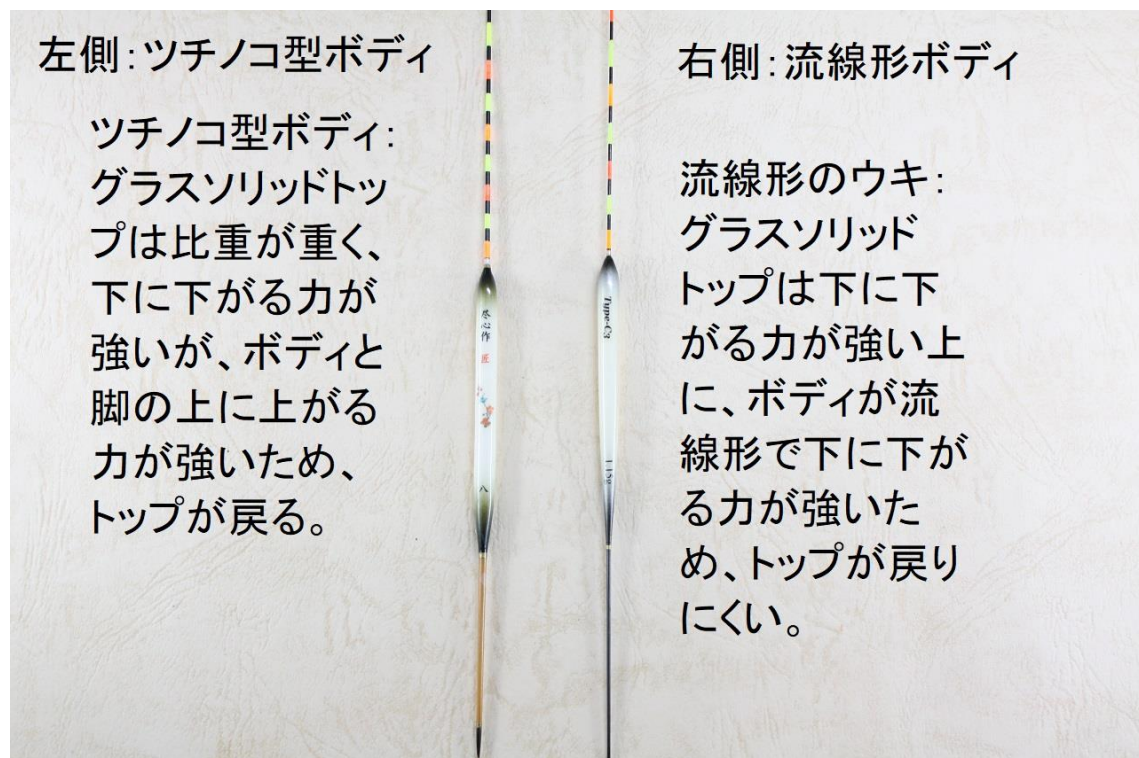 左側：ツチノコ型ボディ
ツチノコ型ボディ：
グラスソリッドトッ
プは比重が重く、
下に下がる力が
強いが、ボディと
脚の上に上がる
力が強いため、
トップが戻る。
尽心作 匠
八
右側：流線形ボディ
流線形のウキ：
グラスソリッド
トップは下に下
がる力が強い上
に、ボディが流
線形で下に下が
る力が強いた
め、トップが戻り
にくい。